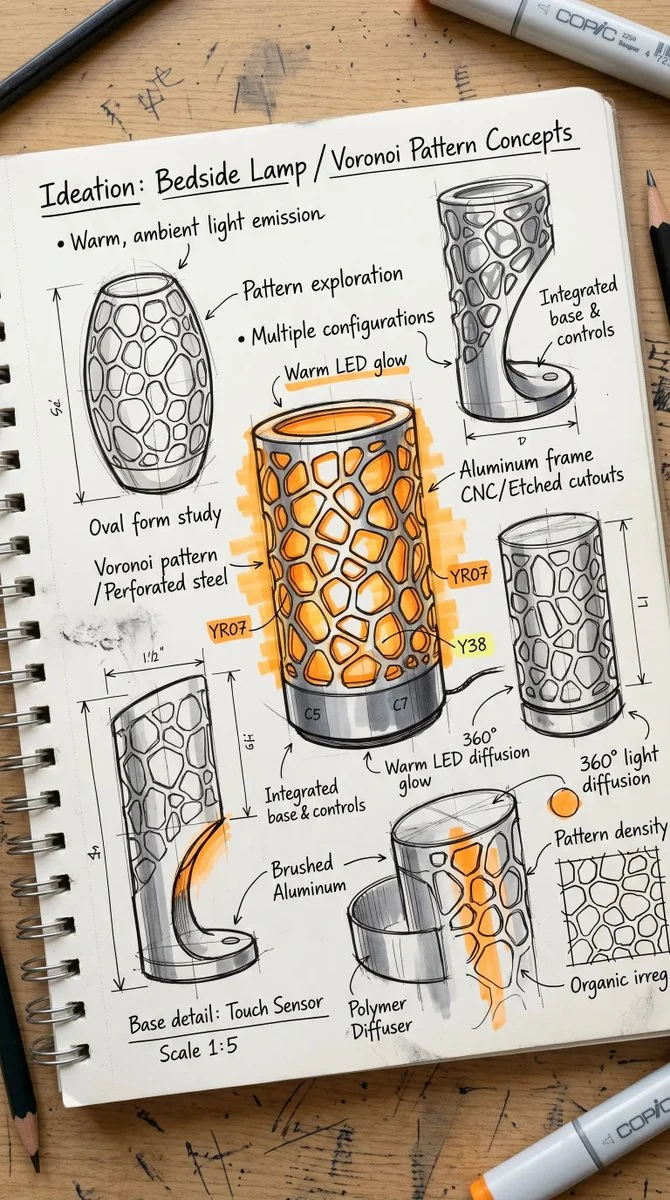 COPIC
Ideation: Bedside Lamp / Voronoi Pattern Concepts
• Warm, ambient light emission
Pattern exploration
• Multiple configurations
Integrated
base &
controls
Warm LED glow
D
Aluminum frame
CNC/Etched cutouts
Oval form study
Voronoi pattern
/Perforated steel
YR07
YR07
Y38
1½"
C5
C7
360°
Warm LED diffusion
glow
360° light
diffusion
Integrated
base & controls
Pattern density
Brushed
Aluminum
Organic irreg
Polymer
Diffuser
Base detail: Touch Sensor
Scale 1:5
COPIC